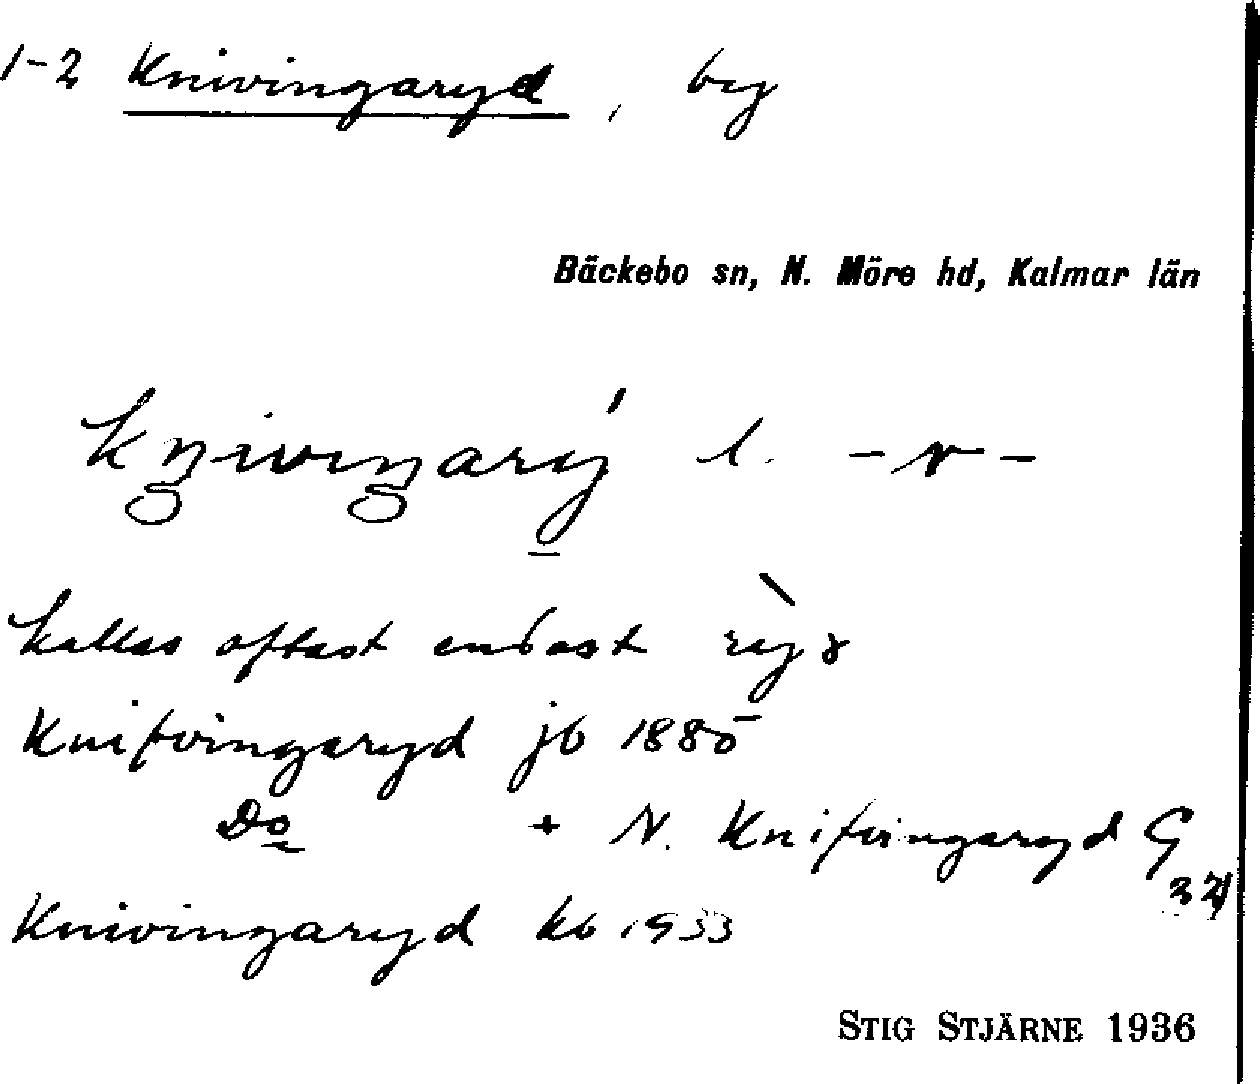 1-2 Knivingaryd, by
Bäckebo sn, N. Möre hd, Kalmar län
knivingary l. -v-
kallas oftast endast
Knifvingaryd jb 1885
Do + N. Knifvingaryd G
Knivingaryd kb 1933
STIG STJÄRNE 1936